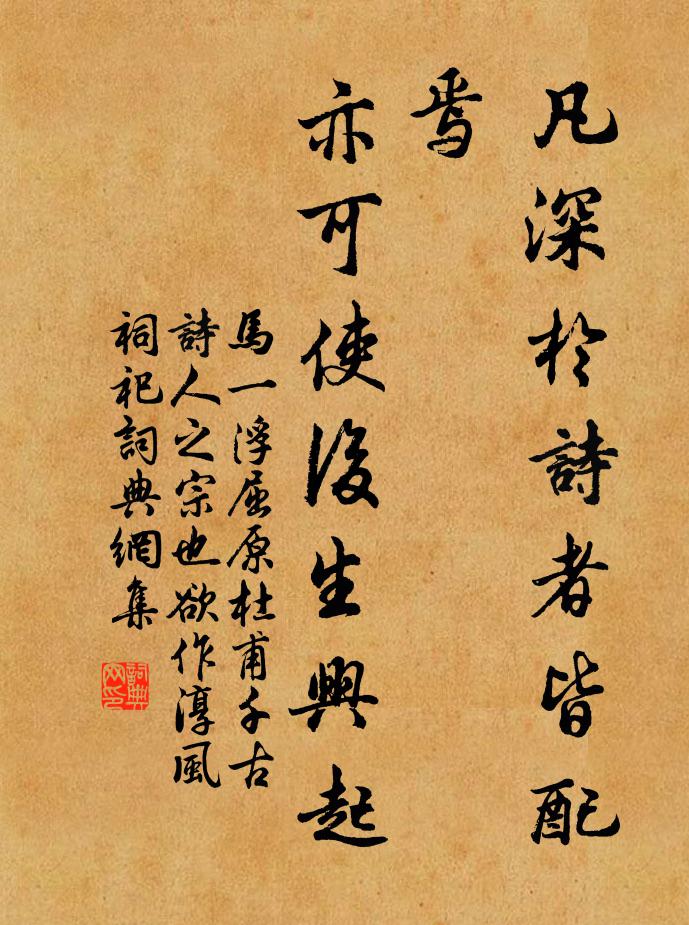 凡深於詩者皆配
焉
亦可使後生興起
馬一浮屈原杜甫千古
詩人之宗也欲作淳風
祠祀詞典網集
詞典
网印